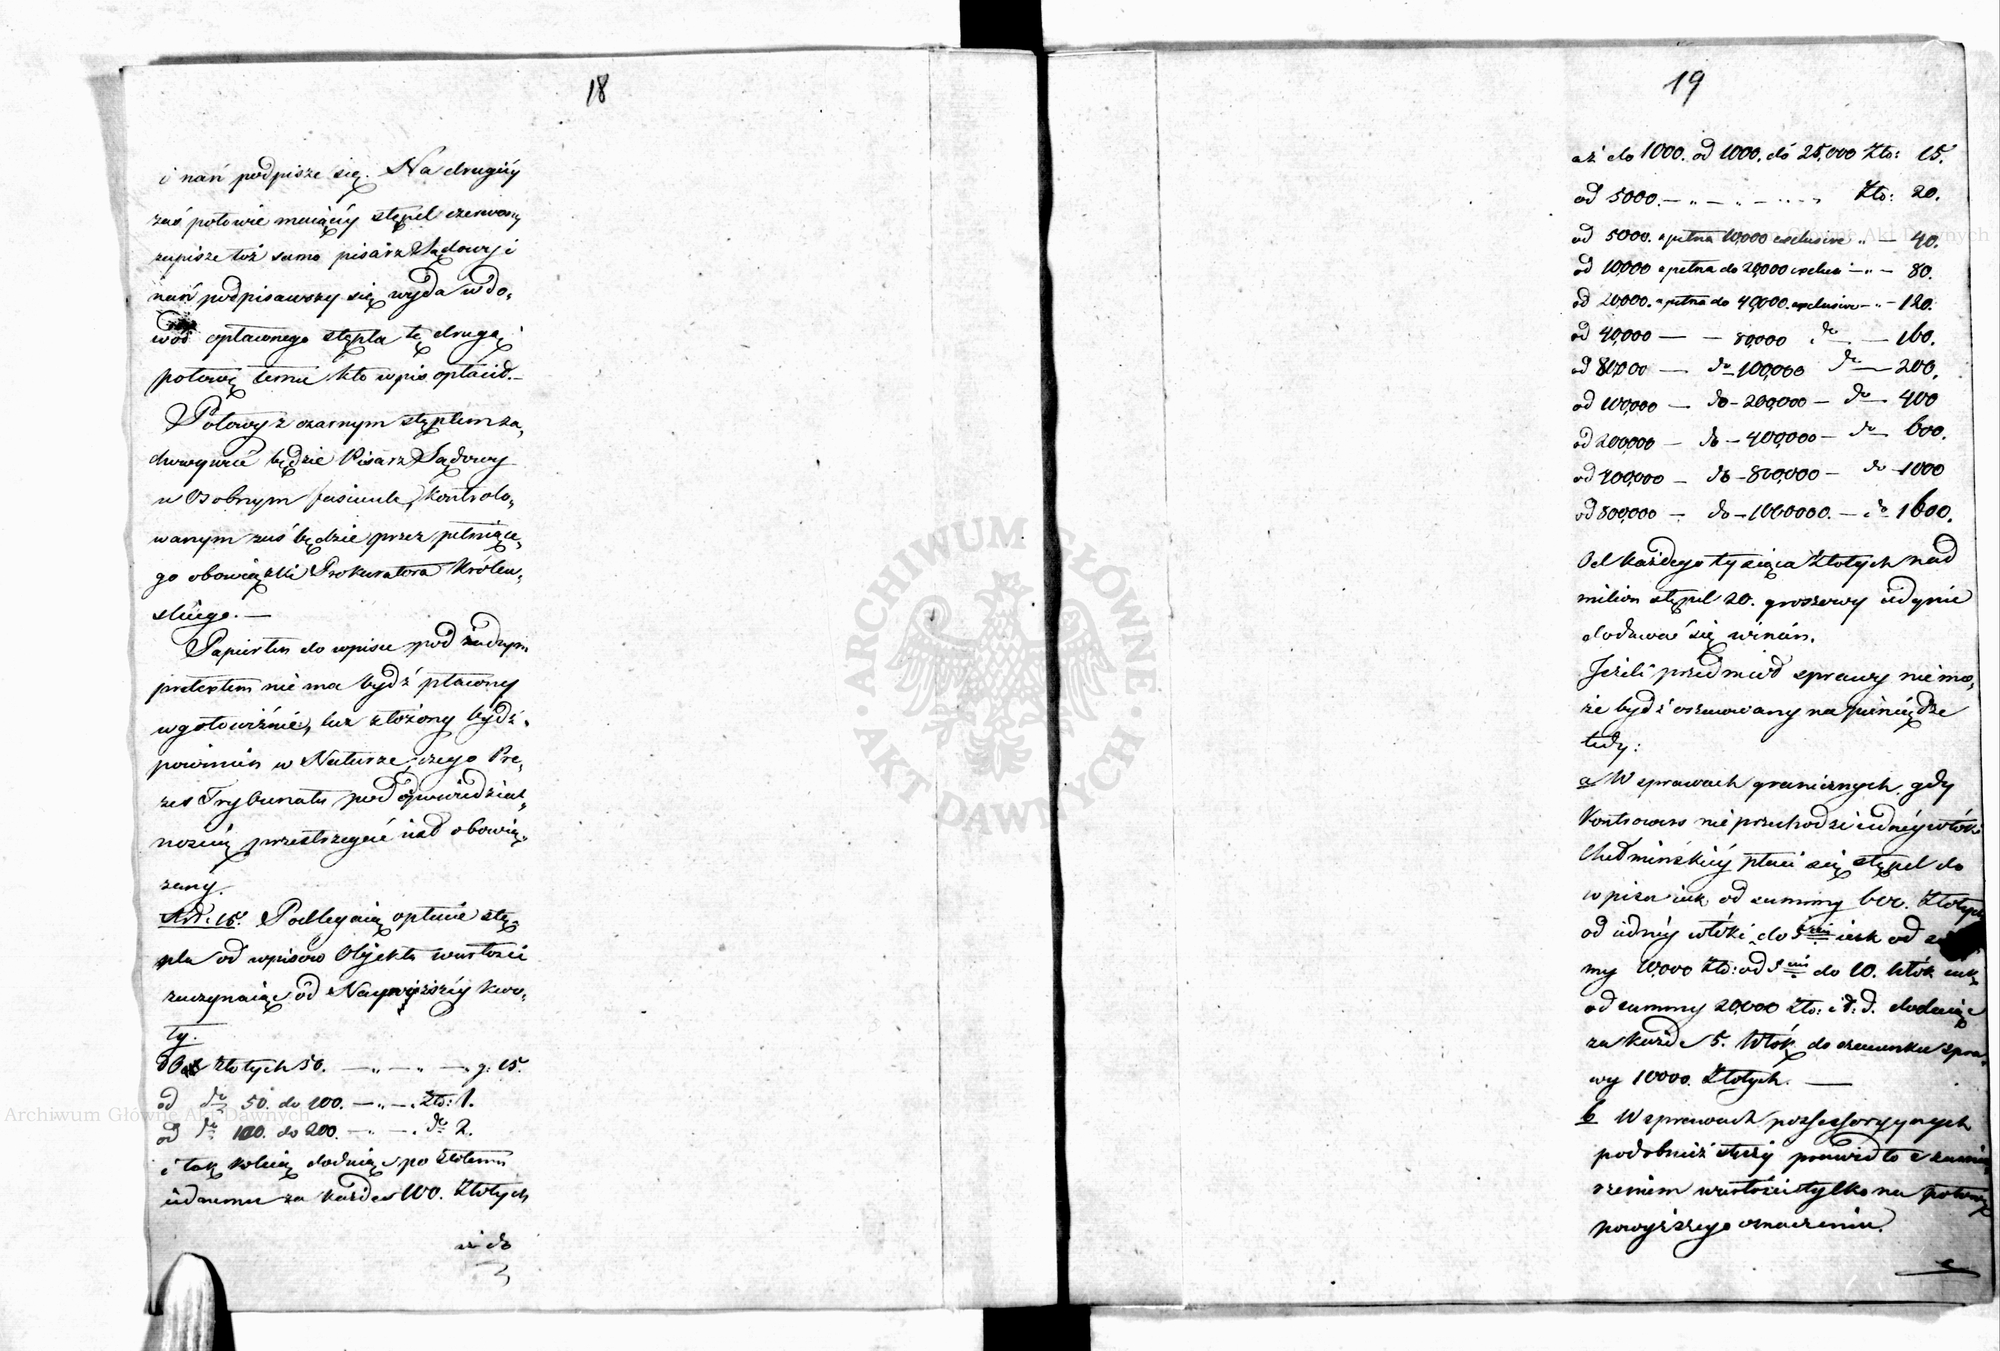 18
i nań podpisze się. Na drugiéy
zaś połowie maiącéy stępel czerwony
zapisze toż samo pisarz Sądowy i
nań podpisawszy się wyda w do,
wód opłaconego stępla tę drugą
połowę temu kto wpis opłacił.—
Połowy z czarnym stęplem za,
chowywać będzie Pisarz Sądowy
w Osobnym fasciule, kontrolo,
wanym zaś będzie przez pełniące,
go obowiązki Prokuratora Królew,
skiego.—
Papier ten do wpisu pod żadnym
pretextem nie ma bydź płacony
w gotowiźnie, lecz złożony bydź
powinien w Naturze, czego Pre,
zes Trybunału pod odpowiedzial,
nością przestrzegać iest obowią,
zany.
Art. 15. Podlegaią opłacie stę,
pla od wpisów Objekta wartości
zaczynaiąc od Naywyższéy kwo,
ty.
Złotych 50. — „ — „ — g: 15.
od do 50. do 100. — „ — Zło: 1.
od do 100. do 200. — „ — do 2.
i tak koleią dodaiąc po złotemu
iednemu za każde 100. Złotych
aż do
19
aż do 1000. od 1000. do 25,000 Zło: 15.
od 5000. — „ — „ — Zło: 20.
od 5000. a pełna 10,000 exclusive „ — 40.
od 10000 a pełna do 20,000 exclusi — „ — 80.
od 20000. a pełna do 40,000. exclusive — „ — 120.
od 40,000 — — 80,000 do — 160.
od 80,000 — do — 100,000 do — 200.
od 100,000 — do — 200,000 — do — 400
od 200,000 — do — 400,000 — do — 600.
od 400,000 — do — 800,000 — do — 1000
od 800,000 — do — 1000000. — do — 1600.
Od każdego tysiąca Złotych nad
milion stępel 20. groszowy iedynie
dodawać się winien.
Jeżeli przedmiot sprawy nie mo,
że bydź oszacowany na pieniądze
tedy:
a W sprawach granicznych, gdy
kontrowers nie przechodzi iednéy włóki
Chełmińskiéy płaci się stępel do
wpisu iak od summy Złotych
od iednéy włóki do 5ciu iak od
my 10,000 Zło: od 5ciu do 10. Włók iak
od summy 20,000 Zło: i t: d. dodaiąc
za każde 5. Włók do szacunku spra,
wy 10000. Złotych. —
b W sprawach possessoryynych
podobnież służy prawidło z
rzeniem wartości tylko na połowę
powyższego oznaczenia.
Archiwum Główne Akt Dawnych
Archiwum Główne Akt Dawnych
ARCHIWUM GŁÓWNE · AKT DAWNYCH ·